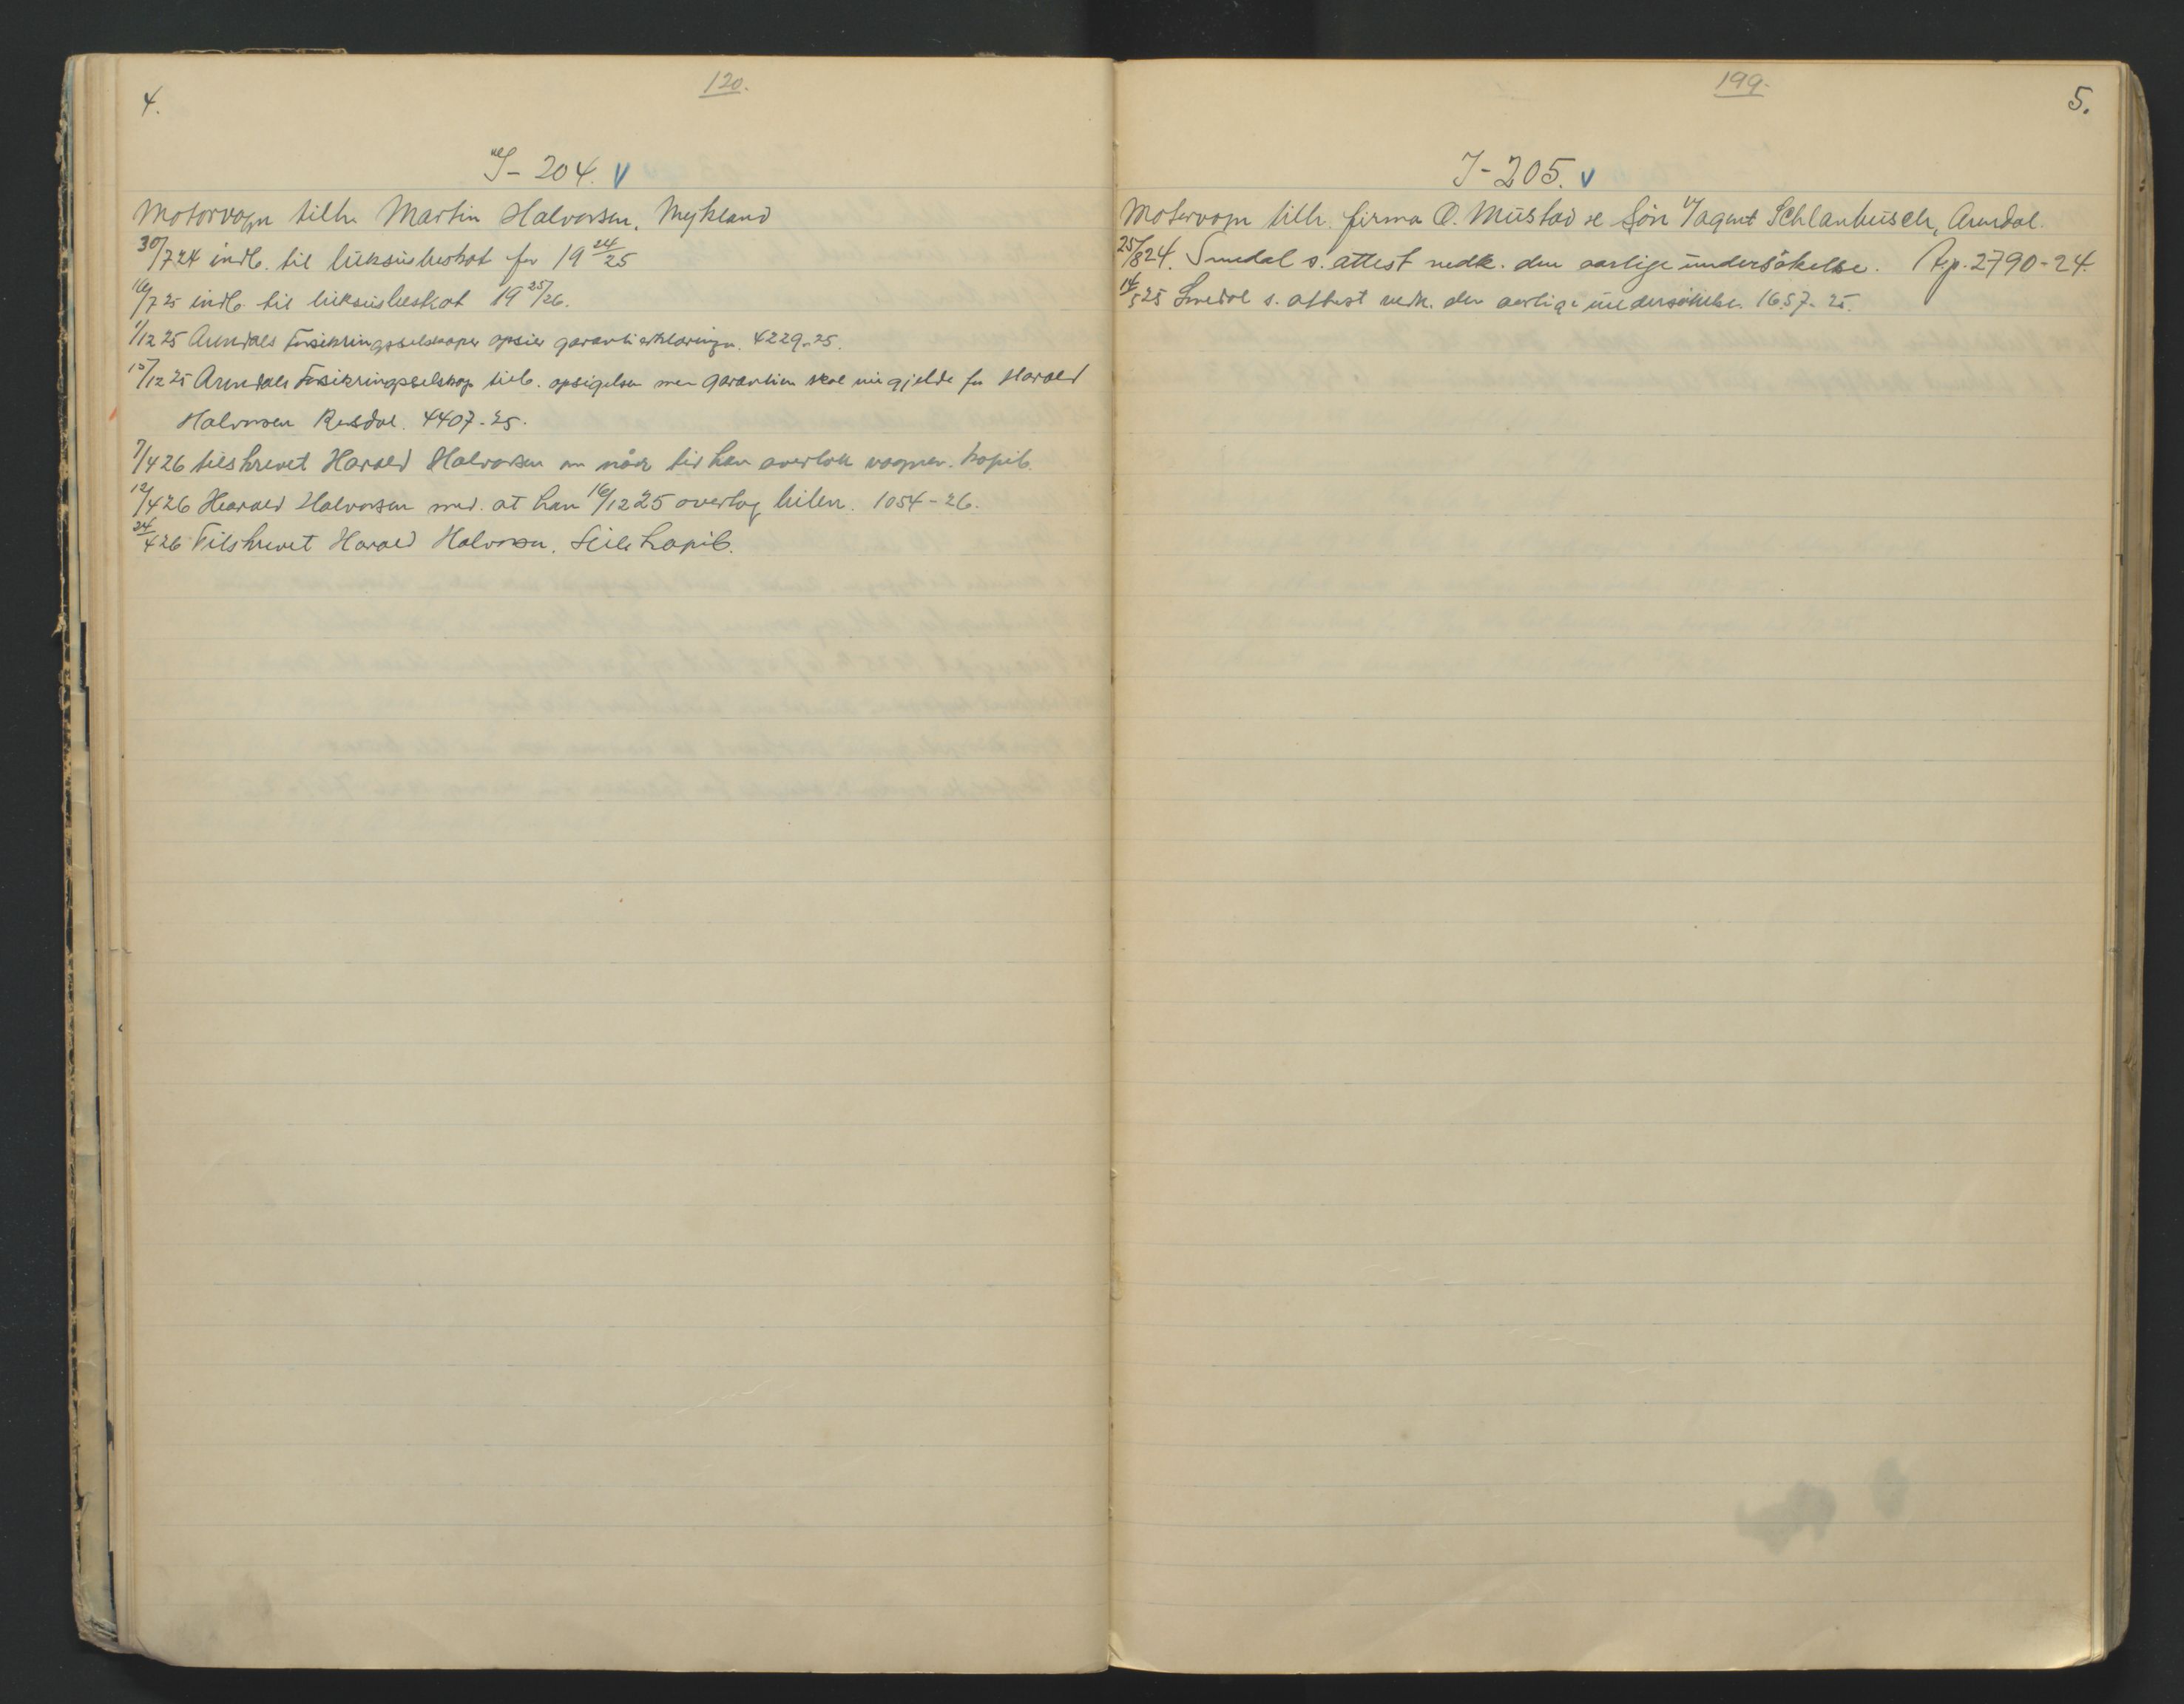 4.
120.
I- 204. V
Motorvogn tilh. Martin Halvorsen, Mykland
30/7 24 indb. til luksusbeskat for 19 24/25
16/7 25 indb. til luksusbeskat 19 25/26.
1/12 25 Arendals Forsikringsselskaper opsier garantierklæringen. 4229-25.
15/12 25 Arendals Forsikringsselskap tilb. opsigelsen men garantien skal nu gjelde for Harald
Halvorsen Risdal. 4407-25.
7/4 26 tilskrevet Harald Halvorsen om når tid han overtok vognen. kopib.
12/4 26 Harald Halvorsen med. at han 16/12 25 overtog bilen. 1054-26.
24/4 26 Tilskrevet Harald Halvorsen. kopib.
199.
5.
I-205. V
Motorvogn tilh. firma O. Mustad & Søn v/agent Schlanbusch, Arendal.
25/8 24. Smedal s. attest vedk. den aarlige undersökelse. A.p. 2790-24.
14/5 25 Smedal s. attest vedk. den aarlige undersökelse. 1657-25.